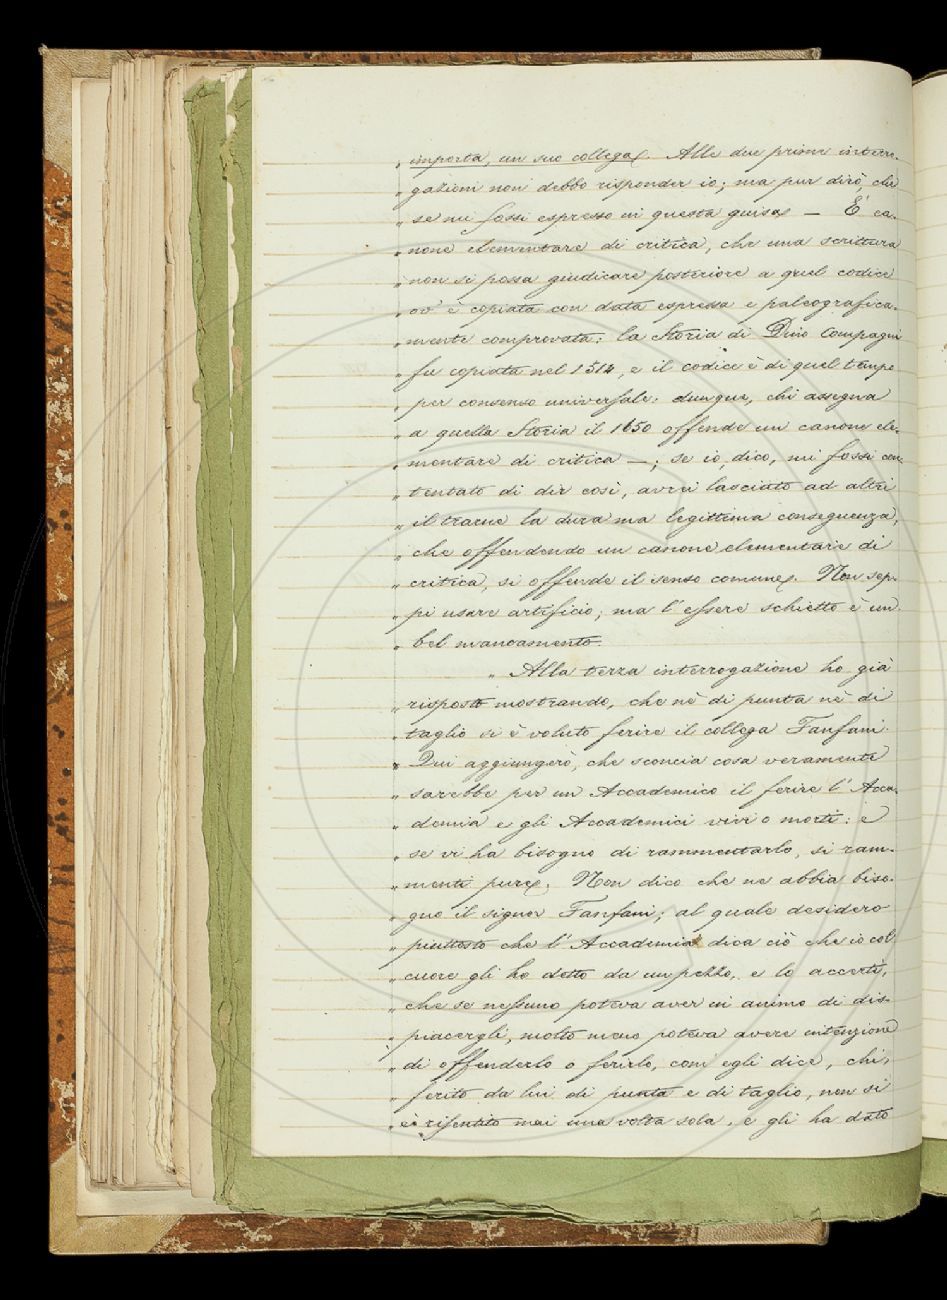 „ importa, un suo collega. Alle due prime interro-
„ gazioni non debbo risponder io; ma pur dirò, che
„ se mi fossi espresso in questa guisa — È ca-
„ none elementare di critica, che una scrittura
„ non si possa giudicare posteriore a quel codice
„ ov' è copiata con data espressa e paleografica-
„ mente comprovata: la Storia di Dino Compagni
„ fu copiata nel 1514, e il codice è di quel tempo
„ per consenso universale: dunque, chi assegna
„ a quella Storia il 1650 offende un canone ele-
„ mentare di critica —; se io, dico, mi fossi con-
„ tentato di dir così, avrei lasciato ad altri
„ il trarne la dura ma legittima conseguenza,
„ che offendendo un canone elementare di
„ critica, si offende il senso comune. Non sep-
„ pi usare artificio; ma l' essere schietto è un
„ bel mancamento.
„ Alla terza interrogazione ho già
„ risposto mostrando, che nè di punta nè di
„ taglio si è voluto ferire il collega Fanfani.
„ Qui aggiungerò, che sconcia cosa veramente
„ sarebbe per un Accademico il ferire l' Acca-
„ demia e gli Accademici vivi o morti: e
„ se vi ha bisogno di rammentarlo, si ram-
„ menti pure. Non dico che ne abbia biso-
„ gno il signor Fanfani; al quale desidero
„ piuttosto che l' Accademia dica ciò che io col
„ cuore gli ho detto da un pezzo, e lo accerti,
„ che se nessuno poteva aver in animo di dis-
„ piacergli, molto meno poteva avere intenzione
„ di offenderlo o ferirlo, com' egli dice, chi,
„ ferito da lui di punta e di taglio, non si
„ è risentito mai una volta sola, e gli ha dato